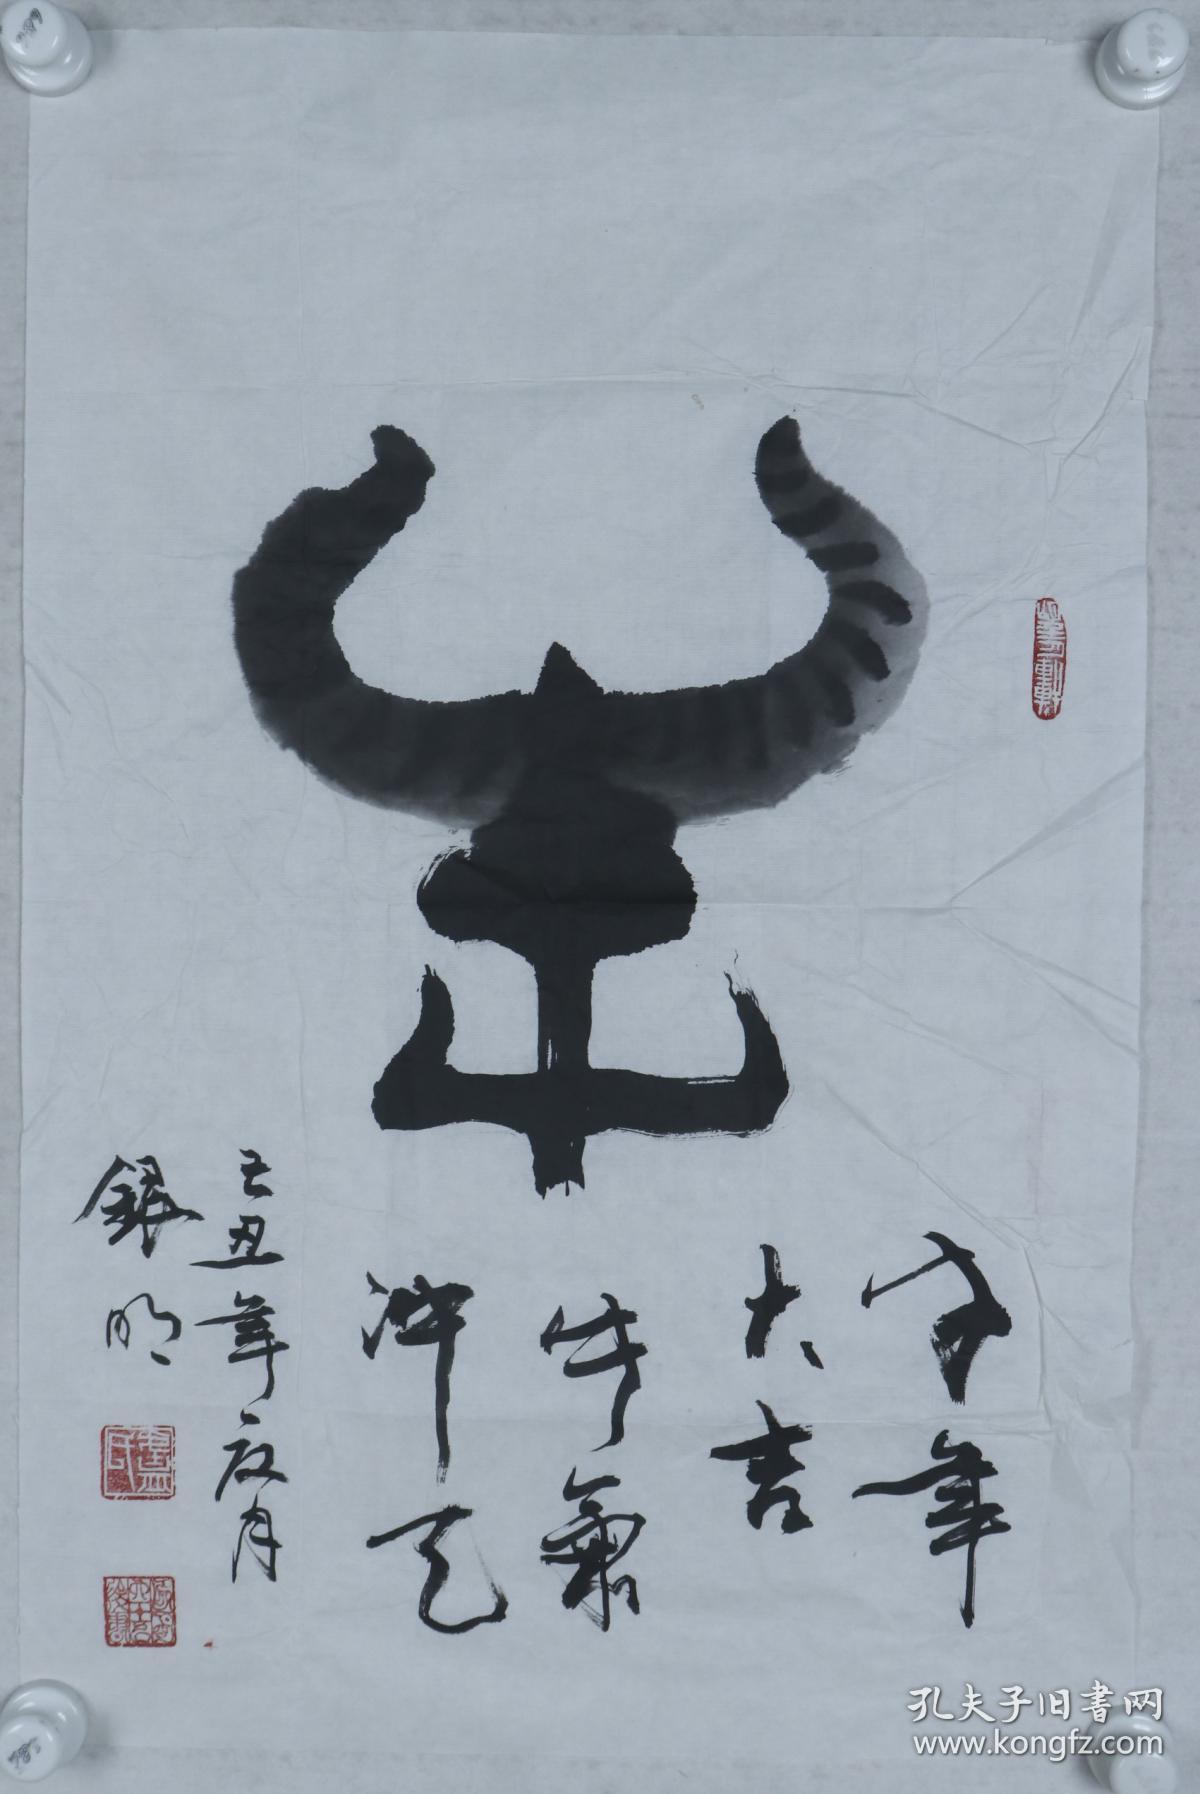 今年
大吉
牛氣
沖天
己丑年夏月
銀明
孔夫子旧书网
www.kongfz.com